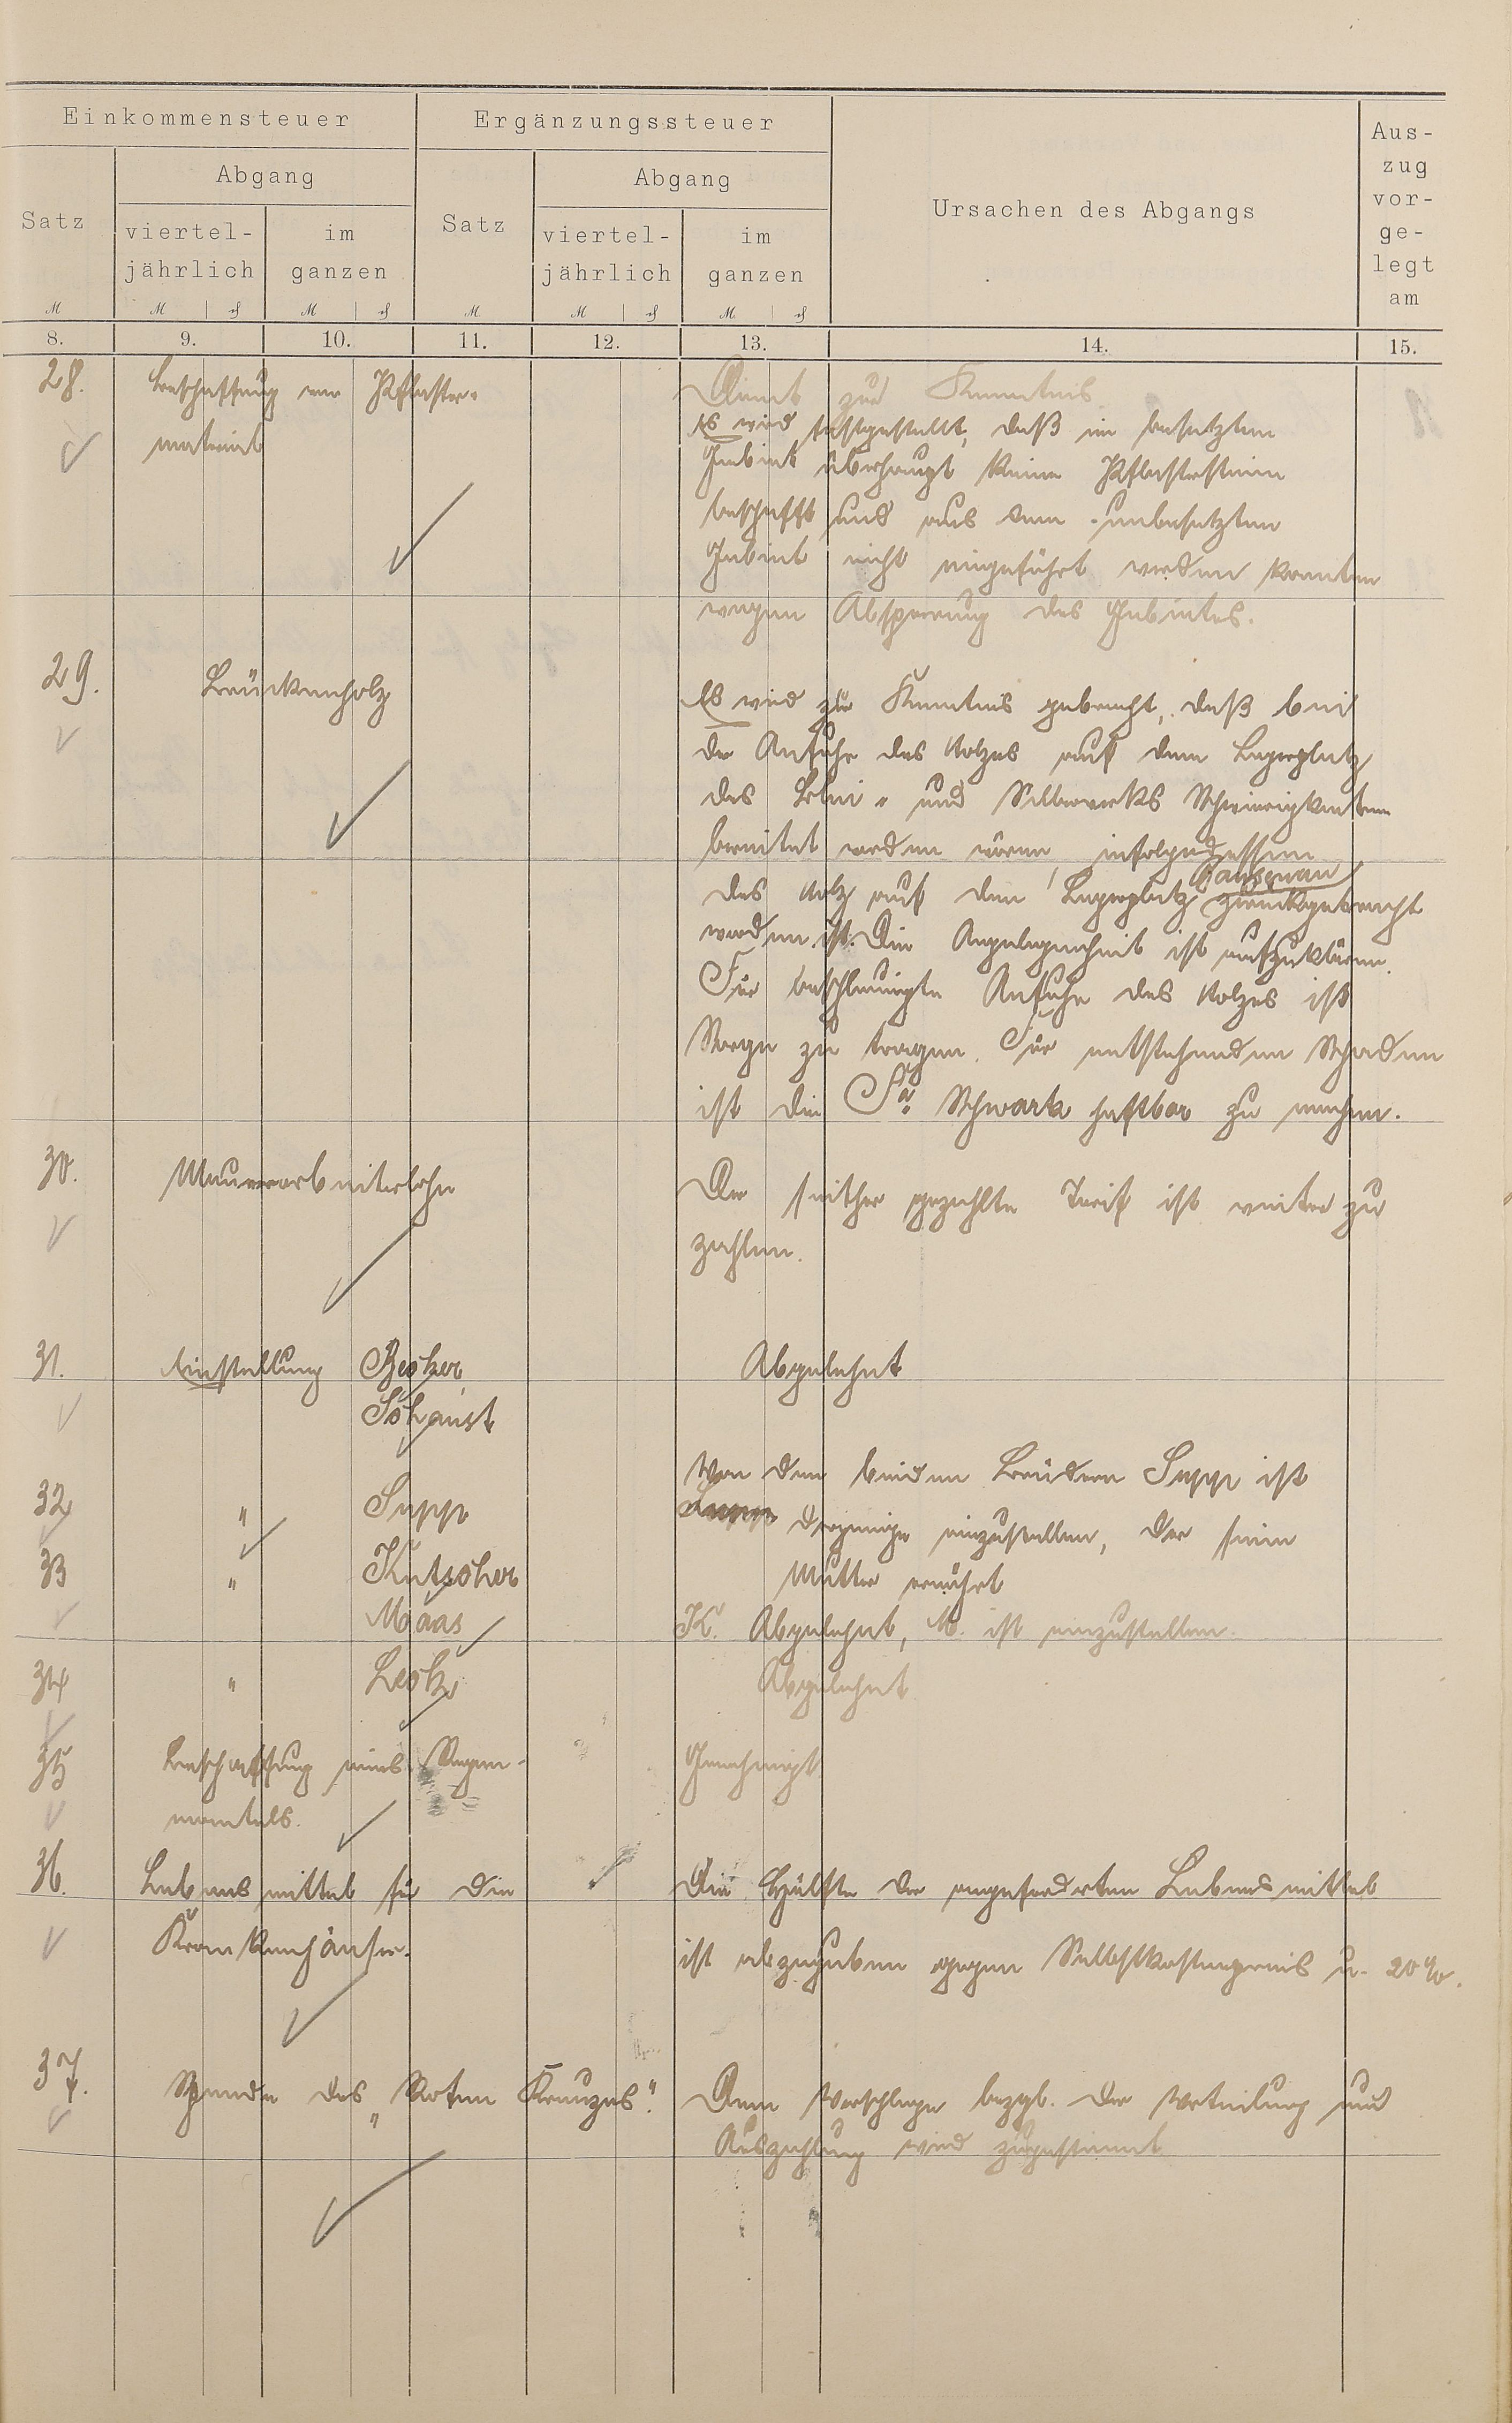 Einkommensteuer
Ergänzungssteuer
Ursachen des Abgangs
Aus-
zug
vor-
ge-
legt
am
Satz
Abgang
Satz
Abgang
viertel-
jährlich
im
ganzen
viertel-
jährlich
im
ganzen
M
M
M
M
M
M
8.
9.
10.
11.
12.
13.
14.
15.
28.
Beschaffung von Pflaster-
material
Dient zur Kenntnis
Es wird festgestellt, daß im besetzten
Gebiet überhaupt keine Pflastersteine
beschafft und aus dem unbesetzten
Gebiet nicht eingeführt werden konnten
wegen Absperrung des Gebietes.
29.
Brückenholz
Es wird zur Kenntnis gebracht, daß bei
der Anfuhr des Holzes auf dem Lagerplatz
des Blei- und Silberwerks Schwierigkeiten
bereitet worden wären, infolgedessen
das Holz auf den Lagerplatz zurückgebracht
worden ist. Die Angelegenheit ist aufzuklären.
Für beschleunigte Anfuhr des Holzes ist
Sorge zu tragen. Für entstehenden Schaden
ist die Fa. Schwark haftbar zu machen.
30.
Maurerarbeiterlohn
Der seither gezahlte Tarif ist weiter zu
zahlen.
31.
Einstellung Becker
Abgelehnt
32
" Supp
Von den beiden Brüdern Supp ist
derjenige einzustellen, der seine
Mutter ernährt
33
" Kutscher
Maas
K. Abgelehnt, M. ist einzustellen.
34
"
Abgelehnt
35
Beschaffung eines Regen-
mantels.
Genehmigt
36.
Lebensmittel für die
Krankenhäuser.
Die Hälfte der angeforderten Lebensmittel
ist abzugeben gegen Selbstkostenpreis u. 20%.
37.
Spende des "Roten Kreuzes".
Dem Vorschlage bezgl. der Verteilung und
Auszahlung wird zugestimmt